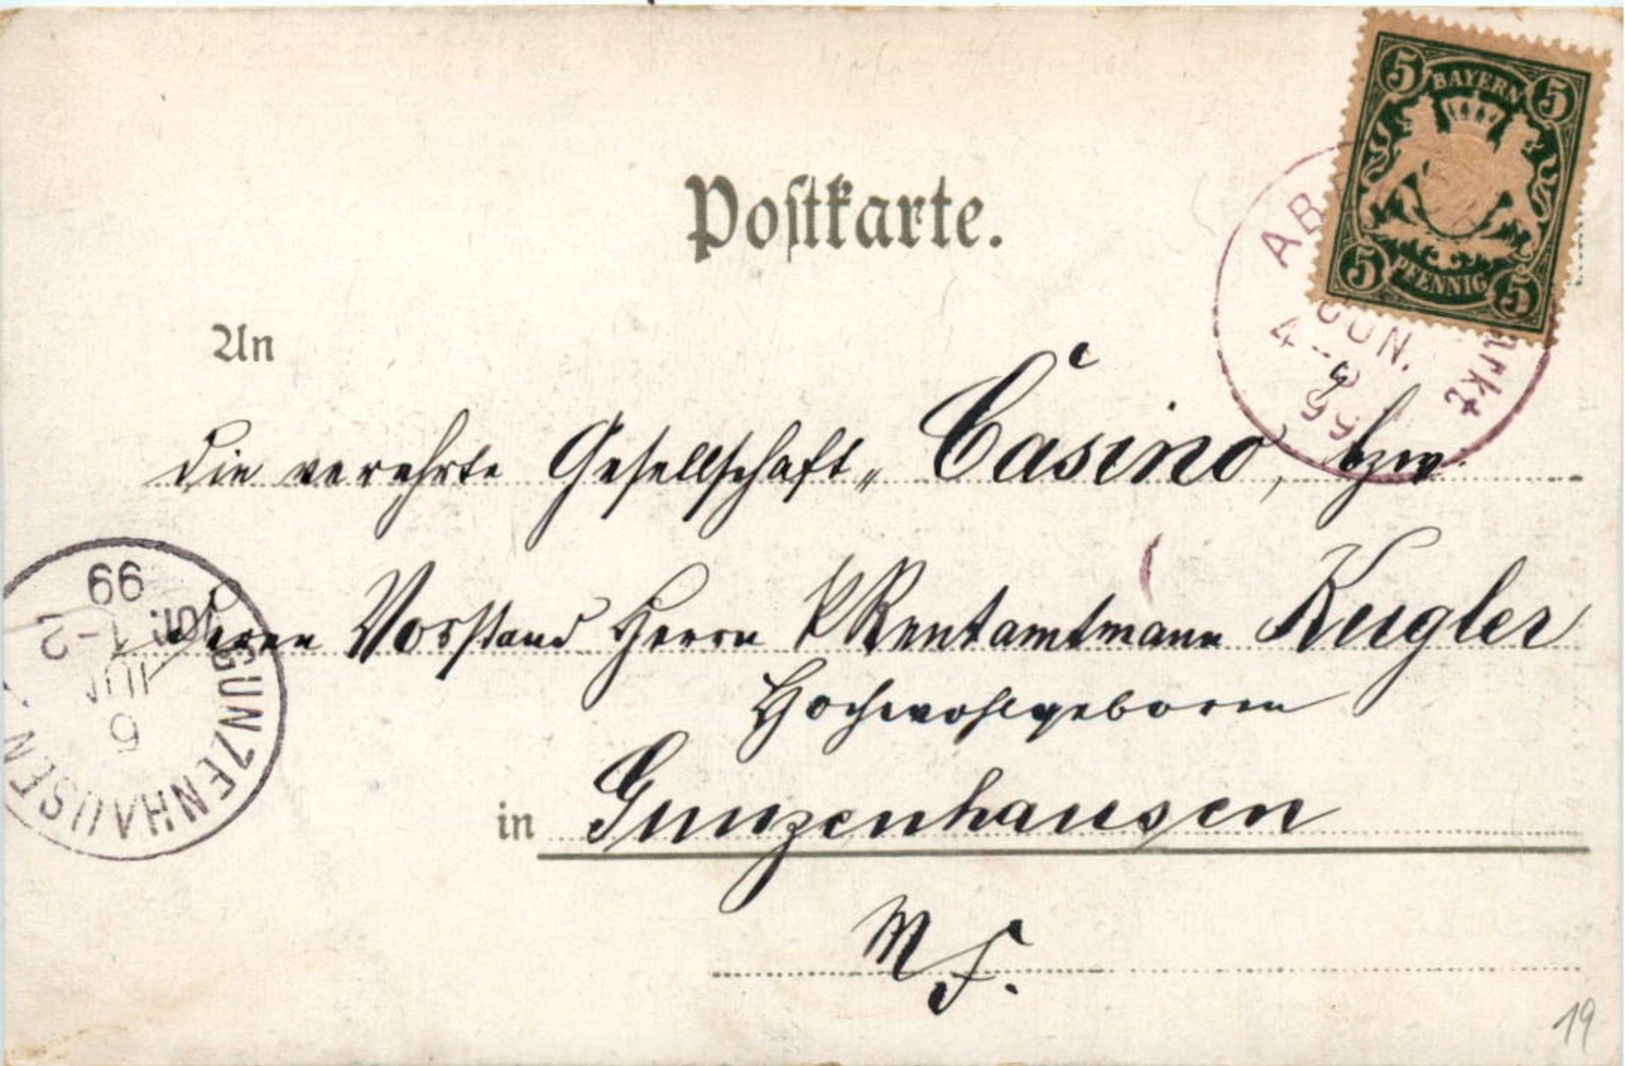 5 BAYERN 5
5 PFENNIG 5
Postkarte.
AB
CON.
4 - 8
99
arkt
An
die verehrte Gesellschaft „Casino, bzw.
deren Vorstand Herrn k Rentamtmann Kugler
Hochwohlgeboren
in Gunzenhausen
M F.
GUNZENHAUSEN
6
1-2
99
19